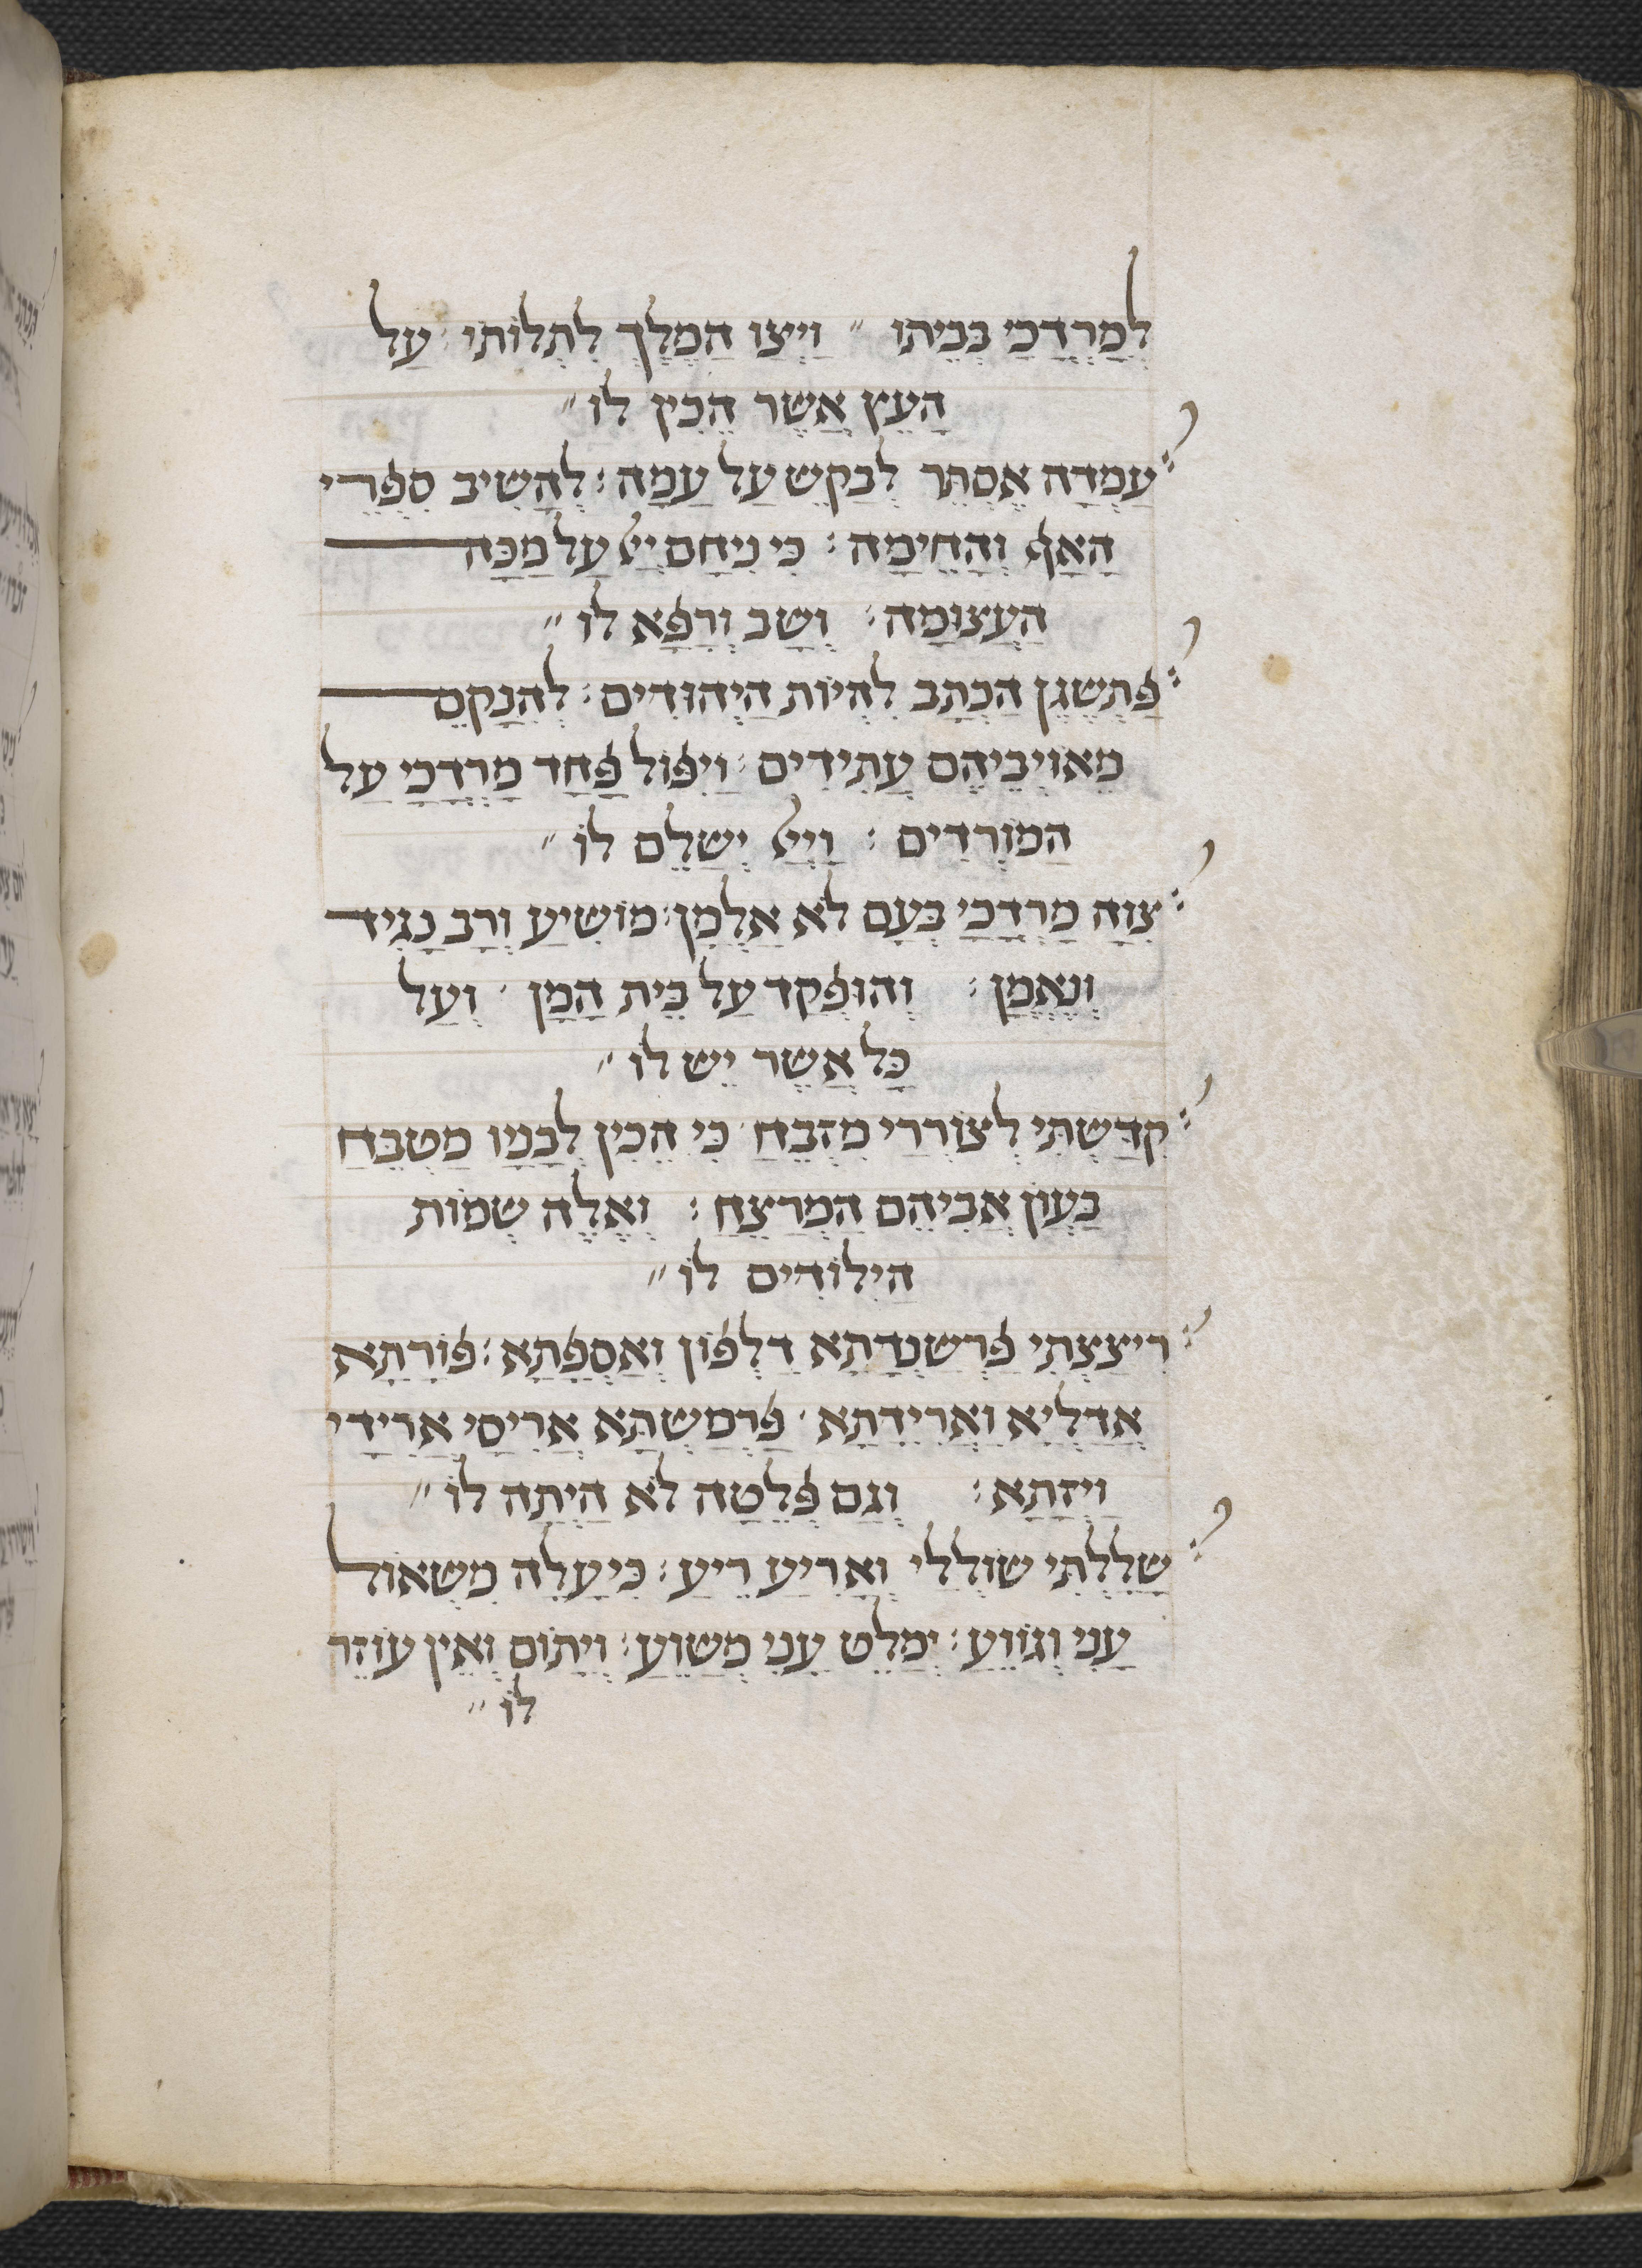 לְמָרְדֳּכַי בְּבֵיתוֹ ״ וַיְצַו הַמֶּלֶךְ לִתְלוֹתִי עַל
הָעֵץ אֲשֶׁר הֵכִין לוֹ ״
עָמְדָה אֶסְתֵּר לְבַקֵּשׁ עַל עַמָּהּ : לְהָשִׁיב סִפְרֵי
הָאַף וְהַחֵימָה : כִּי נִיחַם יְיָ עַל מַכָּה
הָעֲצוּמָה : וְשָׁב וְרָפָא לוֹ ״
פַּתְשֶׁגֶן הַכְּתָב לִהְיוֹת הַיְהוּדִים : לְהִנָּקֵם
מֵאוֹיְבֵיהֶם עֲתִידִים : וַיִּפּוֹל פַּחַד מָרְדֳּכַי עַל
הַמּוֹרְדִים : וַיְיָ יְשַׁלֵּם לוֹ ״
צִוָּה מָרְדֳּכַי בְּעָם לֹא אַלְמָן : מוֹשִׁיעַ וְרַב נָגִיד
וְנֶאֱמָן : וְהוּפְקַד עַל בֵּית הָמָן וְעַל
כָּל אֲשֶׁר יֵשׁ לוֹ ״
קִדַּשְׁתִּי לְצוֹרְרַי מִזְבֵּחַ כִּי הֵכִין לְבָנָיו מַטְבֵּחַ
בַּעֲוֹן אֲבִיהֶם הַמְרַצֵּחַ : וְאֵלֶּה שְׁמוֹת
הַיִּלּוֹדִים לוֹ ״
רִיצַּצְתִּי פַּרְשַׁנְדָּתָא דַּלְפוֹן וְאַסְפָּתָא : פּוֹרָתָא
אֲדַלְיָא וַאֲרִידָתָא פַּרְמַשְׁתָּא אֲרִיסַי אֲרִידַי
וַיְזָתָא : וְגַם פְּלֵטָה לֹא הָיְתָה לוֹ ״
שָׁלַלְתִּי שׁוֹלְלַי וְאָרִיעַ רֵיעַ : כִּי עָלָה מִשְּׁאוֹל
עָנִי וְגוֹוֵעַ : יְמַלֵּט עָנִי מְשַׁוֵּעַ : וְיָתוֹם וְאֵין עוֹזֵר
לוֹ ״